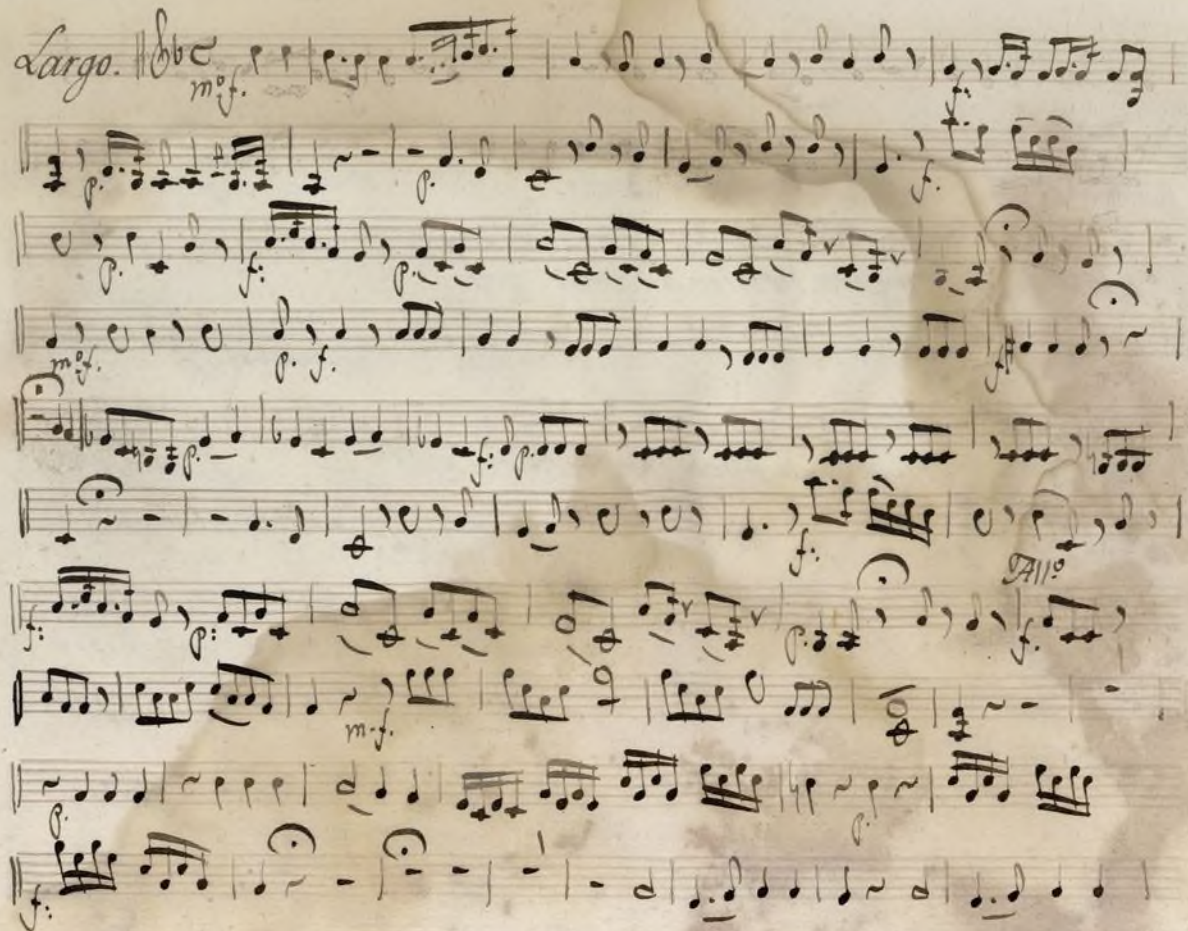 Largo. m:o f. f:
p. p. f.
p. f: p.
m:o f. p. f. f
p. f: p.
f: All:o
f: p: p. f.
m. f.
p. p.
f: